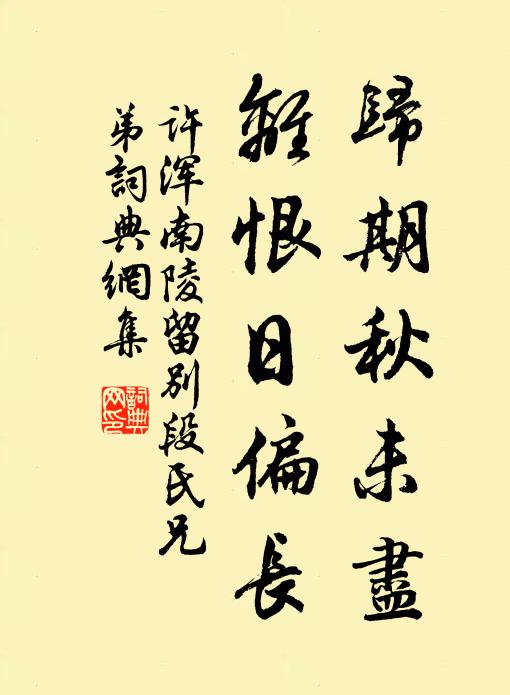 歸期秋未盡
離恨日偏長
许渾南陵留别段氏兄
弟詞典網集
詞典
网印